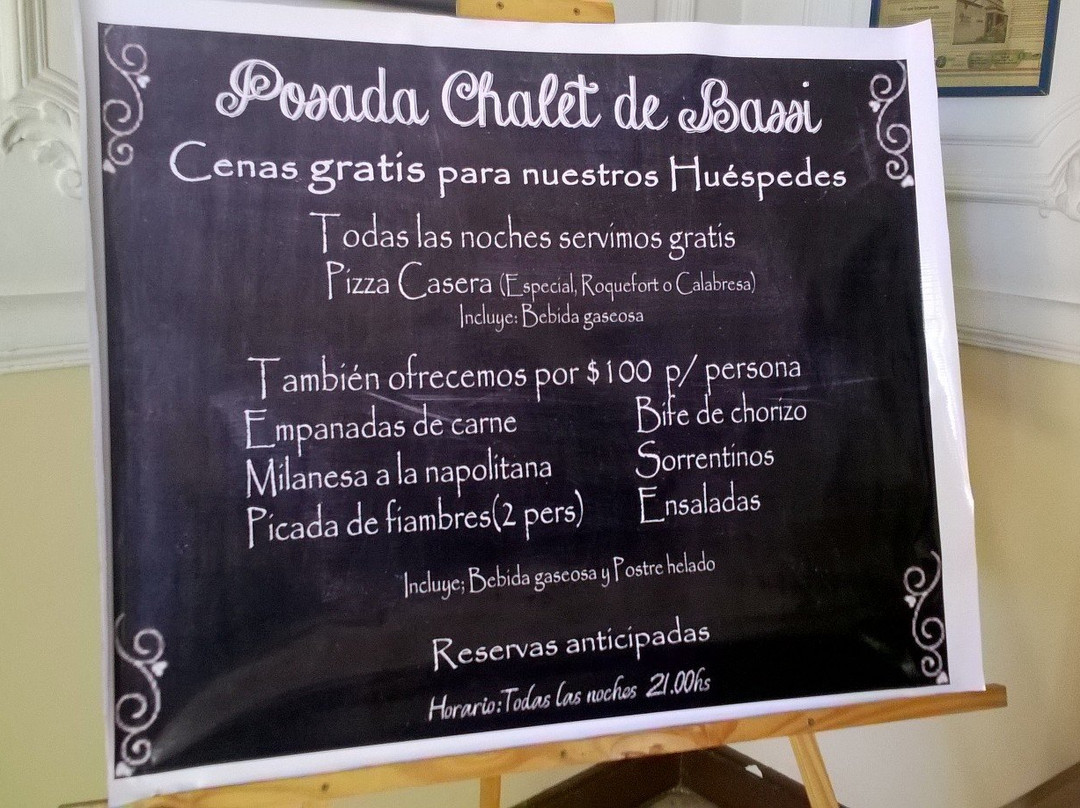 Posada Chalet de Bassi
Cenas gratis para nuestros Huéspedes
Todas las noches servimos gratis
Pizza Casera (Especial, Roquefort o Calabresa)
Incluye: Bebida gaseosa
También ofrecemos por $100 p/ persona
Empanadas de carne
Milanesa a la napolitana
Picada de fiambres(2 pers)
Bife de chorizo
Sorrentinos
Ensaladas
Incluye; Bebida gaseosa y Postre helado
Reservas anticipadas
Horario: Todas las noches 21.00hs